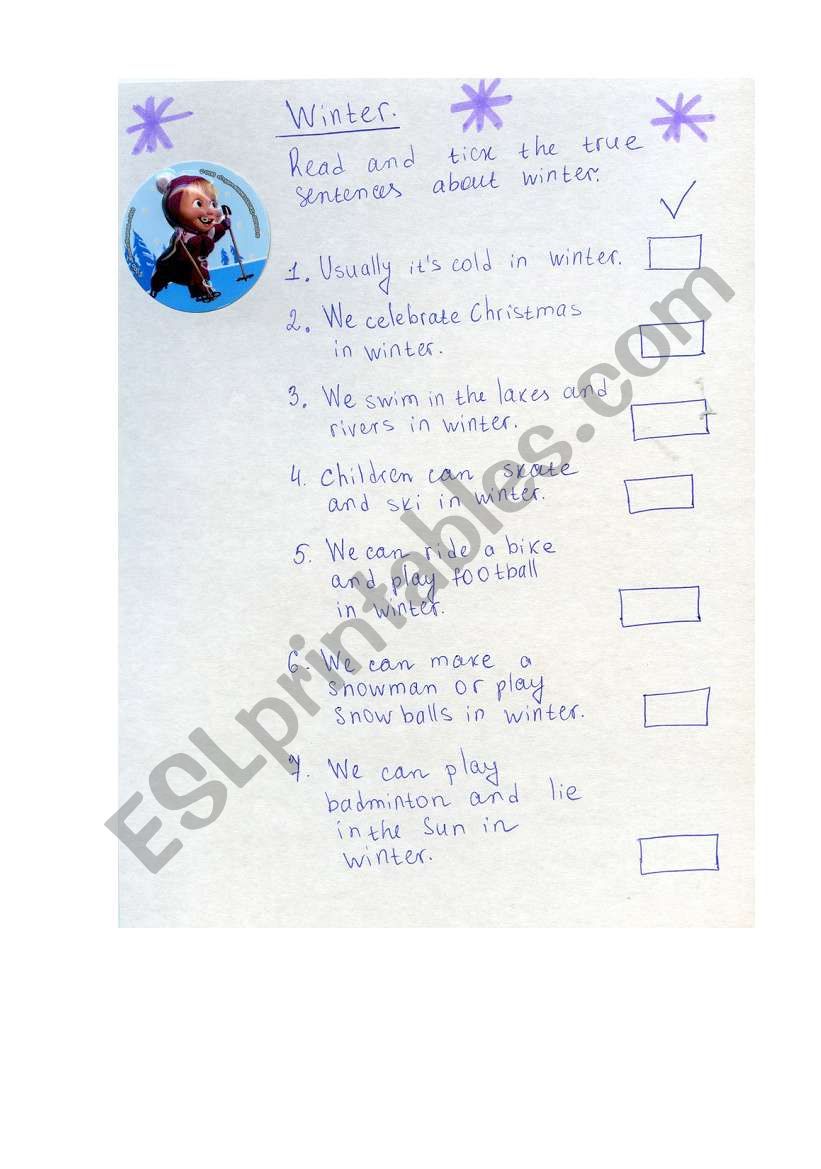 Winter.
Read and tick the true
sentences about winter.
1. Usually it's cold in winter.
2. We celebrate Christmas
in winter.
3. We swim in the lakes and
rivers in winter.
4. Children can skate
and ski in winter.
5. We can ride a bike
and play football
in winter.
6. We can make a
snowman or play
snowballs in winter.
7. We can play
badminton and lie
in the sun in
winter.
ESLprintables.com